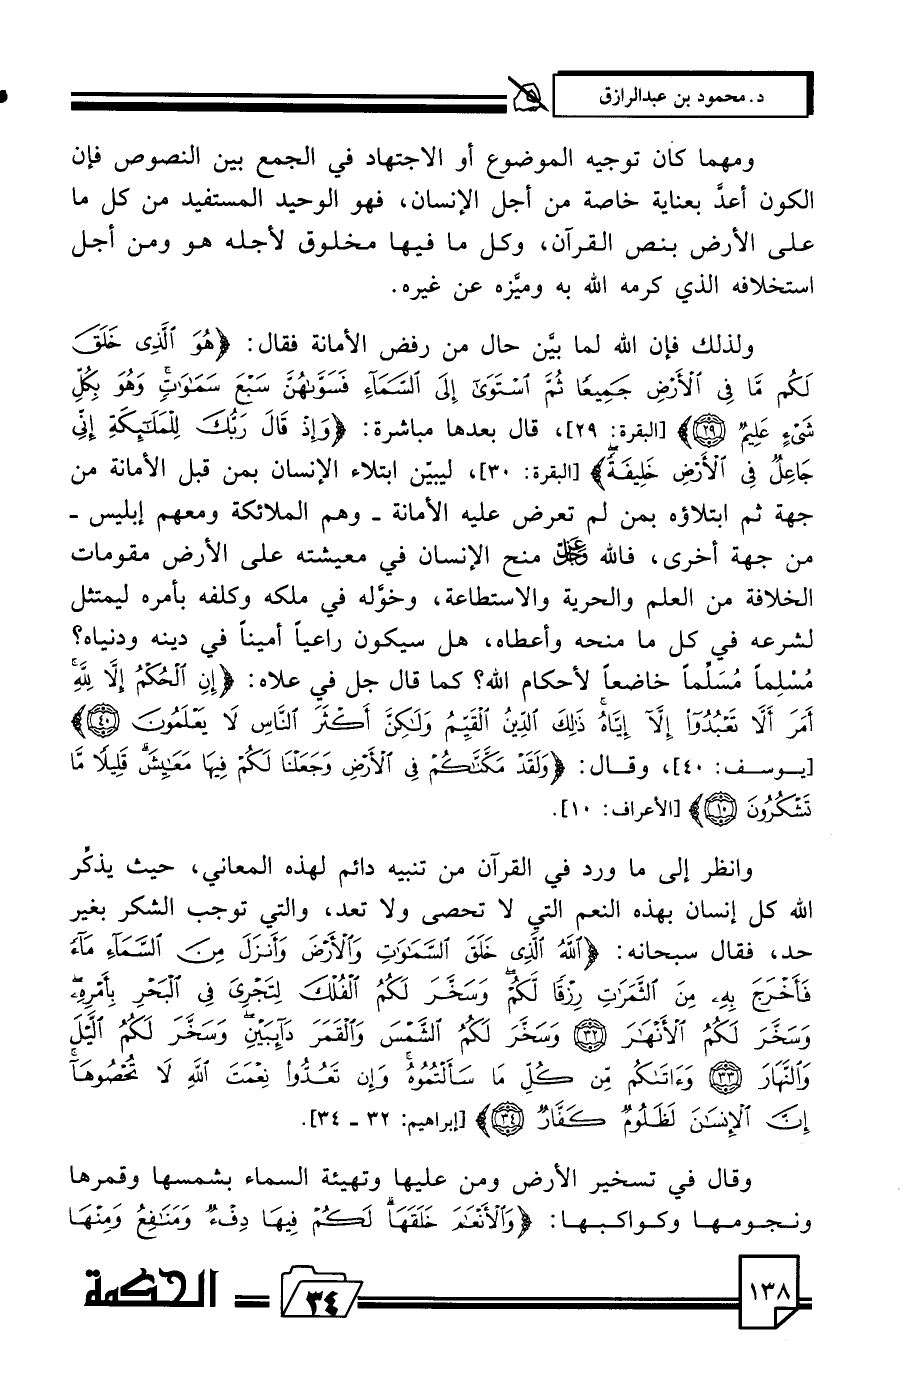 د. محمود بن عبدالرازق
ومهما كان توجيه الموضوع أو الاجتهاد في الجمع بين النصوص فإن
الكون أعدَّ بعناية خاصة من أجل الإنسان، فهو الوحيد المستفيد من كل ما
على الأرض بنص القرآن، وكل ما فيها مخلوق لأجله هو ومن أجل
استخلافه الذي كرمه الله به وميَّزه عن غيره.
ولذلك فإن الله لما بيَّن حال من رفض الأمانة فقال: ﴿هُوَ ٱلَّذِى خَلَقَ
لَكُم مَّا فِى ٱلْأَرْضِ جَمِيعًا ثُمَّ ٱسْتَوَىٰٓ إِلَى ٱلسَّمَآءِ فَسَوَّىٰهُنَّ سَبْعَ سَمَـٰوَٰتٍۚ وَهُوَ بِكُلِّ
شَىْءٍ عَلِيمٌ ۝٢٩﴾ [البقرة: ٢٩]، قال بعدها مباشرة: ﴿وَإِذْ قَالَ رَبُّكَ لِلْمَلَـٰٓئِكَةِ إِنِّى
جَاعِلٌ فِى ٱلْأَرْضِ خَلِيفَةًۖ﴾ [البقرة: ٣٠]، ليبيّن ابتلاء الإنسان بمن قبل الأمانة من
جهة ثم ابتلاؤه بمن لم تعرض عليه الأمانة ـ وهم الملائكة ومعهم إبليس ـ
من جهة أخرى، فالله عز وجل منح الإنسان في معيشته على الأرض مقومات
الخلافة من العلم والحرية والاستطاعة، وخوَّله في ملكه وكلفه بأمره ليمتثل
لشرعه في كل ما منحه وأعطاه، هل سيكون راعياً أميناً في دينه ودنياه؟
مُسْلِماً مُسَلِّماً خاضعاً لأحكام الله؟ كما قال جل في علاه: ﴿إِنِ ٱلْحُكْمُ إِلَّا لِلَّهِۚ
أَمَرَ أَلَّا تَعْبُدُوٓا۟ إِلَّآ إِيَّاهُۚ ذَٰلِكَ ٱلدِّينُ ٱلْقَيِّمُ وَلَـٰكِنَّ أَكْثَرَ ٱلنَّاسِ لَا يَعْلَمُونَ ۝٤٠﴾
[يوسف: ٤٠]، وقال: ﴿وَلَقَدْ مَكَّنَّـٰكُمْ فِى ٱلْأَرْضِ وَجَعَلْنَا لَكُمْ فِيهَا مَعَـٰيِشَۗ قَلِيلًا مَّا
تَشْكُرُونَ ۝١٠﴾ [الأعراف: ١٠].
وانظر إلى ما ورد في القرآن من تنبيه دائم لهذه المعاني، حيث يذكِّر
الله كل إنسان بهذه النعم التي لا تحصى ولا تعد، والتي توجب الشكر بغير
حد، فقال سبحانه: ﴿ٱللَّهُ ٱلَّذِى خَلَقَ ٱلسَّمَـٰوَٰتِ وَٱلْأَرْضَ وَأَنزَلَ مِنَ ٱلسَّمَآءِ مَآءً
فَأَخْرَجَ بِهِۦ مِنَ ٱلثَّمَرَٰتِ رِزْقًا لَّكُمْۖ وَسَخَّرَ لَكُمُ ٱلْفُلْكَ لِتَجْرِىَ فِى ٱلْبَحْرِ بِأَمْرِهِۦۖ
وَسَخَّرَ لَكُمُ ٱلْأَنْهَـٰرَ ۝٣٢ وَسَخَّرَ لَكُمُ ٱلشَّمْسَ وَٱلْقَمَرَ دَآئِبَيْنِۖ وَسَخَّرَ لَكُمُ ٱلَّيْلَ
وَٱلنَّهَارَ ۝٣٣ وَءَاتَىٰكُم مِّن كُلِّ مَا سَأَلْتُمُوهُۚ وَإِن تَعُدُّوا۟ نِعْمَتَ ٱللَّهِ لَا تُحْصُوهَآۗ
إِنَّ ٱلْإِنسَـٰنَ لَظَلُومٌ كَفَّارٌ ۝٣٤﴾ [إبراهيم: ٣٢ ـ ٣٤].
وقال في تسخير الأرض ومن عليها وتهيئة السماء بشمسها وقمرها
ونجومها وكواكبها: ﴿وَٱلْأَنْعَـٰمَ خَلَقَهَاۗ لَكُمْ فِيهَا دِفْءٌ وَمَنَـٰفِعُ وَمِنْهَا
١٣٨
٣٤
الحكمة